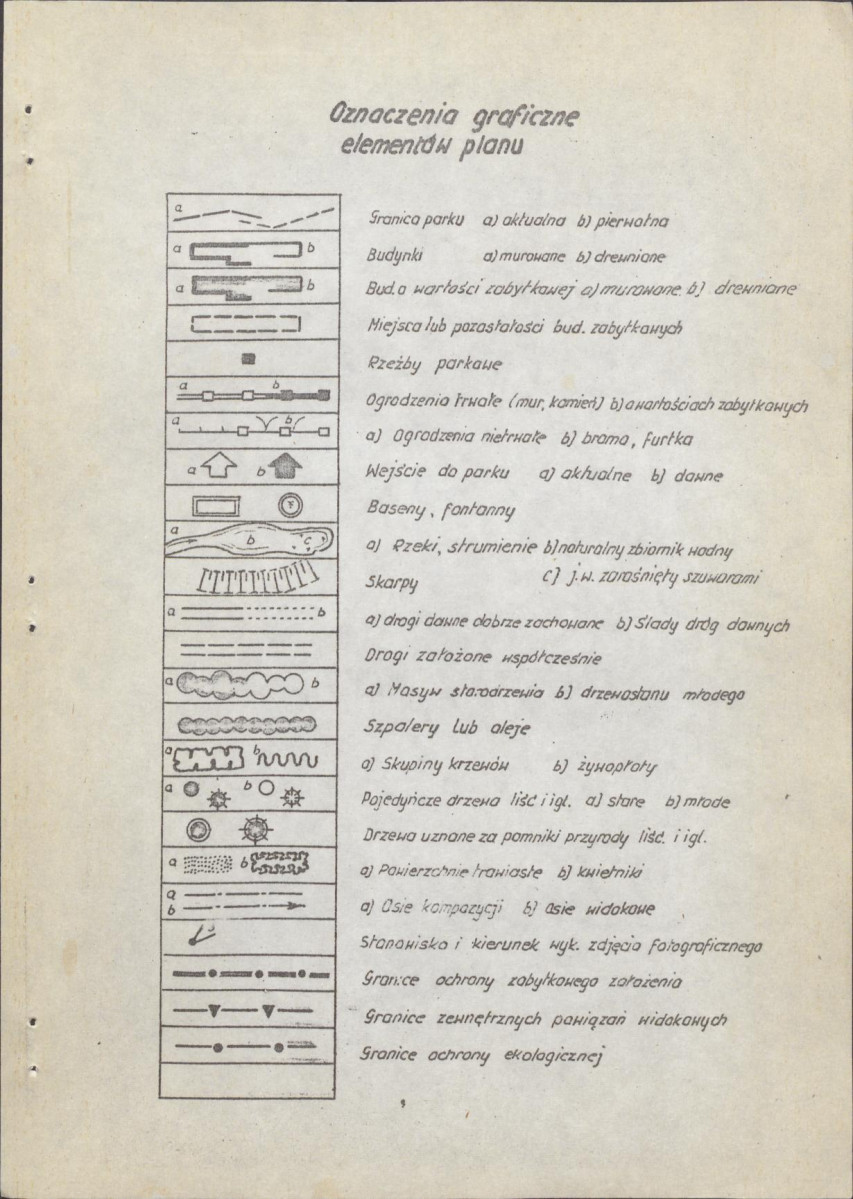 Oznaczenia graficzne
elementów planu
a
Granica parku a) aktualna b) pierwotna
a b
Budynki a) murowane b) drewniane
a b
Bud. o wartości zabytkowej a) murowane b) drewniane
Miejsca lub pozostałości bud. zabytkowych
Rzeźby parkowe
a b
Ogrodzenia trwałe (mur, kamień) b) o wartościach zabytkowych
a b
a) Ogrodzenia nietrwałe b) brama, furtka
a b
Wejście do parku a) aktualne b) dawne
F
Baseny, fontanny
a b c
a) Rzeki, strumienie b) naturalny zbiornik wodny
Skarpy c) j.w. zarośnięty szuwarami
a b
a) drogi dawne dobrze zachowane b) Ślady dróg dawnych
Drogi założone współcześnie
a b
a) Masyw starodrzewia b) drzewostanu młodego
Szpalery lub aleje
a b
a) Skupiny krzewów b) żywopłoty
a b
Pojedyńcze drzewa liść i igl. a) stare b) młode
Drzewa uznane za pomniki przyrody liść. i igl.
a b
a) Powierzchnie trawiaste b) kwietniki
a
b
a) Osie kompozycji b) Osie widokowe
Stanowisko i kierunek wyk. zdjęcia fotograficznego
Granice ochrony zabytkowego założenia
Granice zewnętrznych powiązań widokowych
Granice ochrony ekologicznej